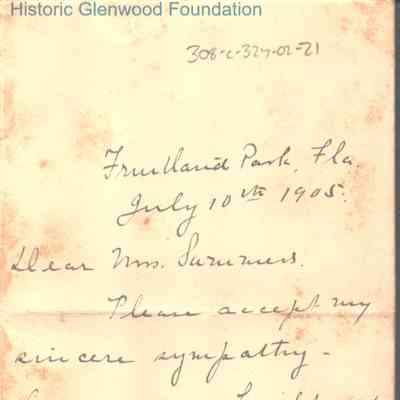 Historic Glenwood Foundation
308-c-324-02-21
Fruitland Park, Fla.
July 10th 1905.
Dear Mrs. Summers.
Please accept my
sincere sympathy-